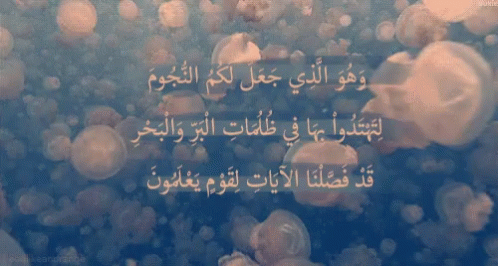 وَهُوَ الَّذِي جَعَلَ لَكُمُ النُّجُومَ
لِتَهْتَدُواْ بِهَا فِي ظُلُمَاتِ الْبَرِّ وَالْبَحْرِ
قَدْ فَصَّلْنَا الآيَاتِ لِقَوْمٍ يَعْلَمُونَ